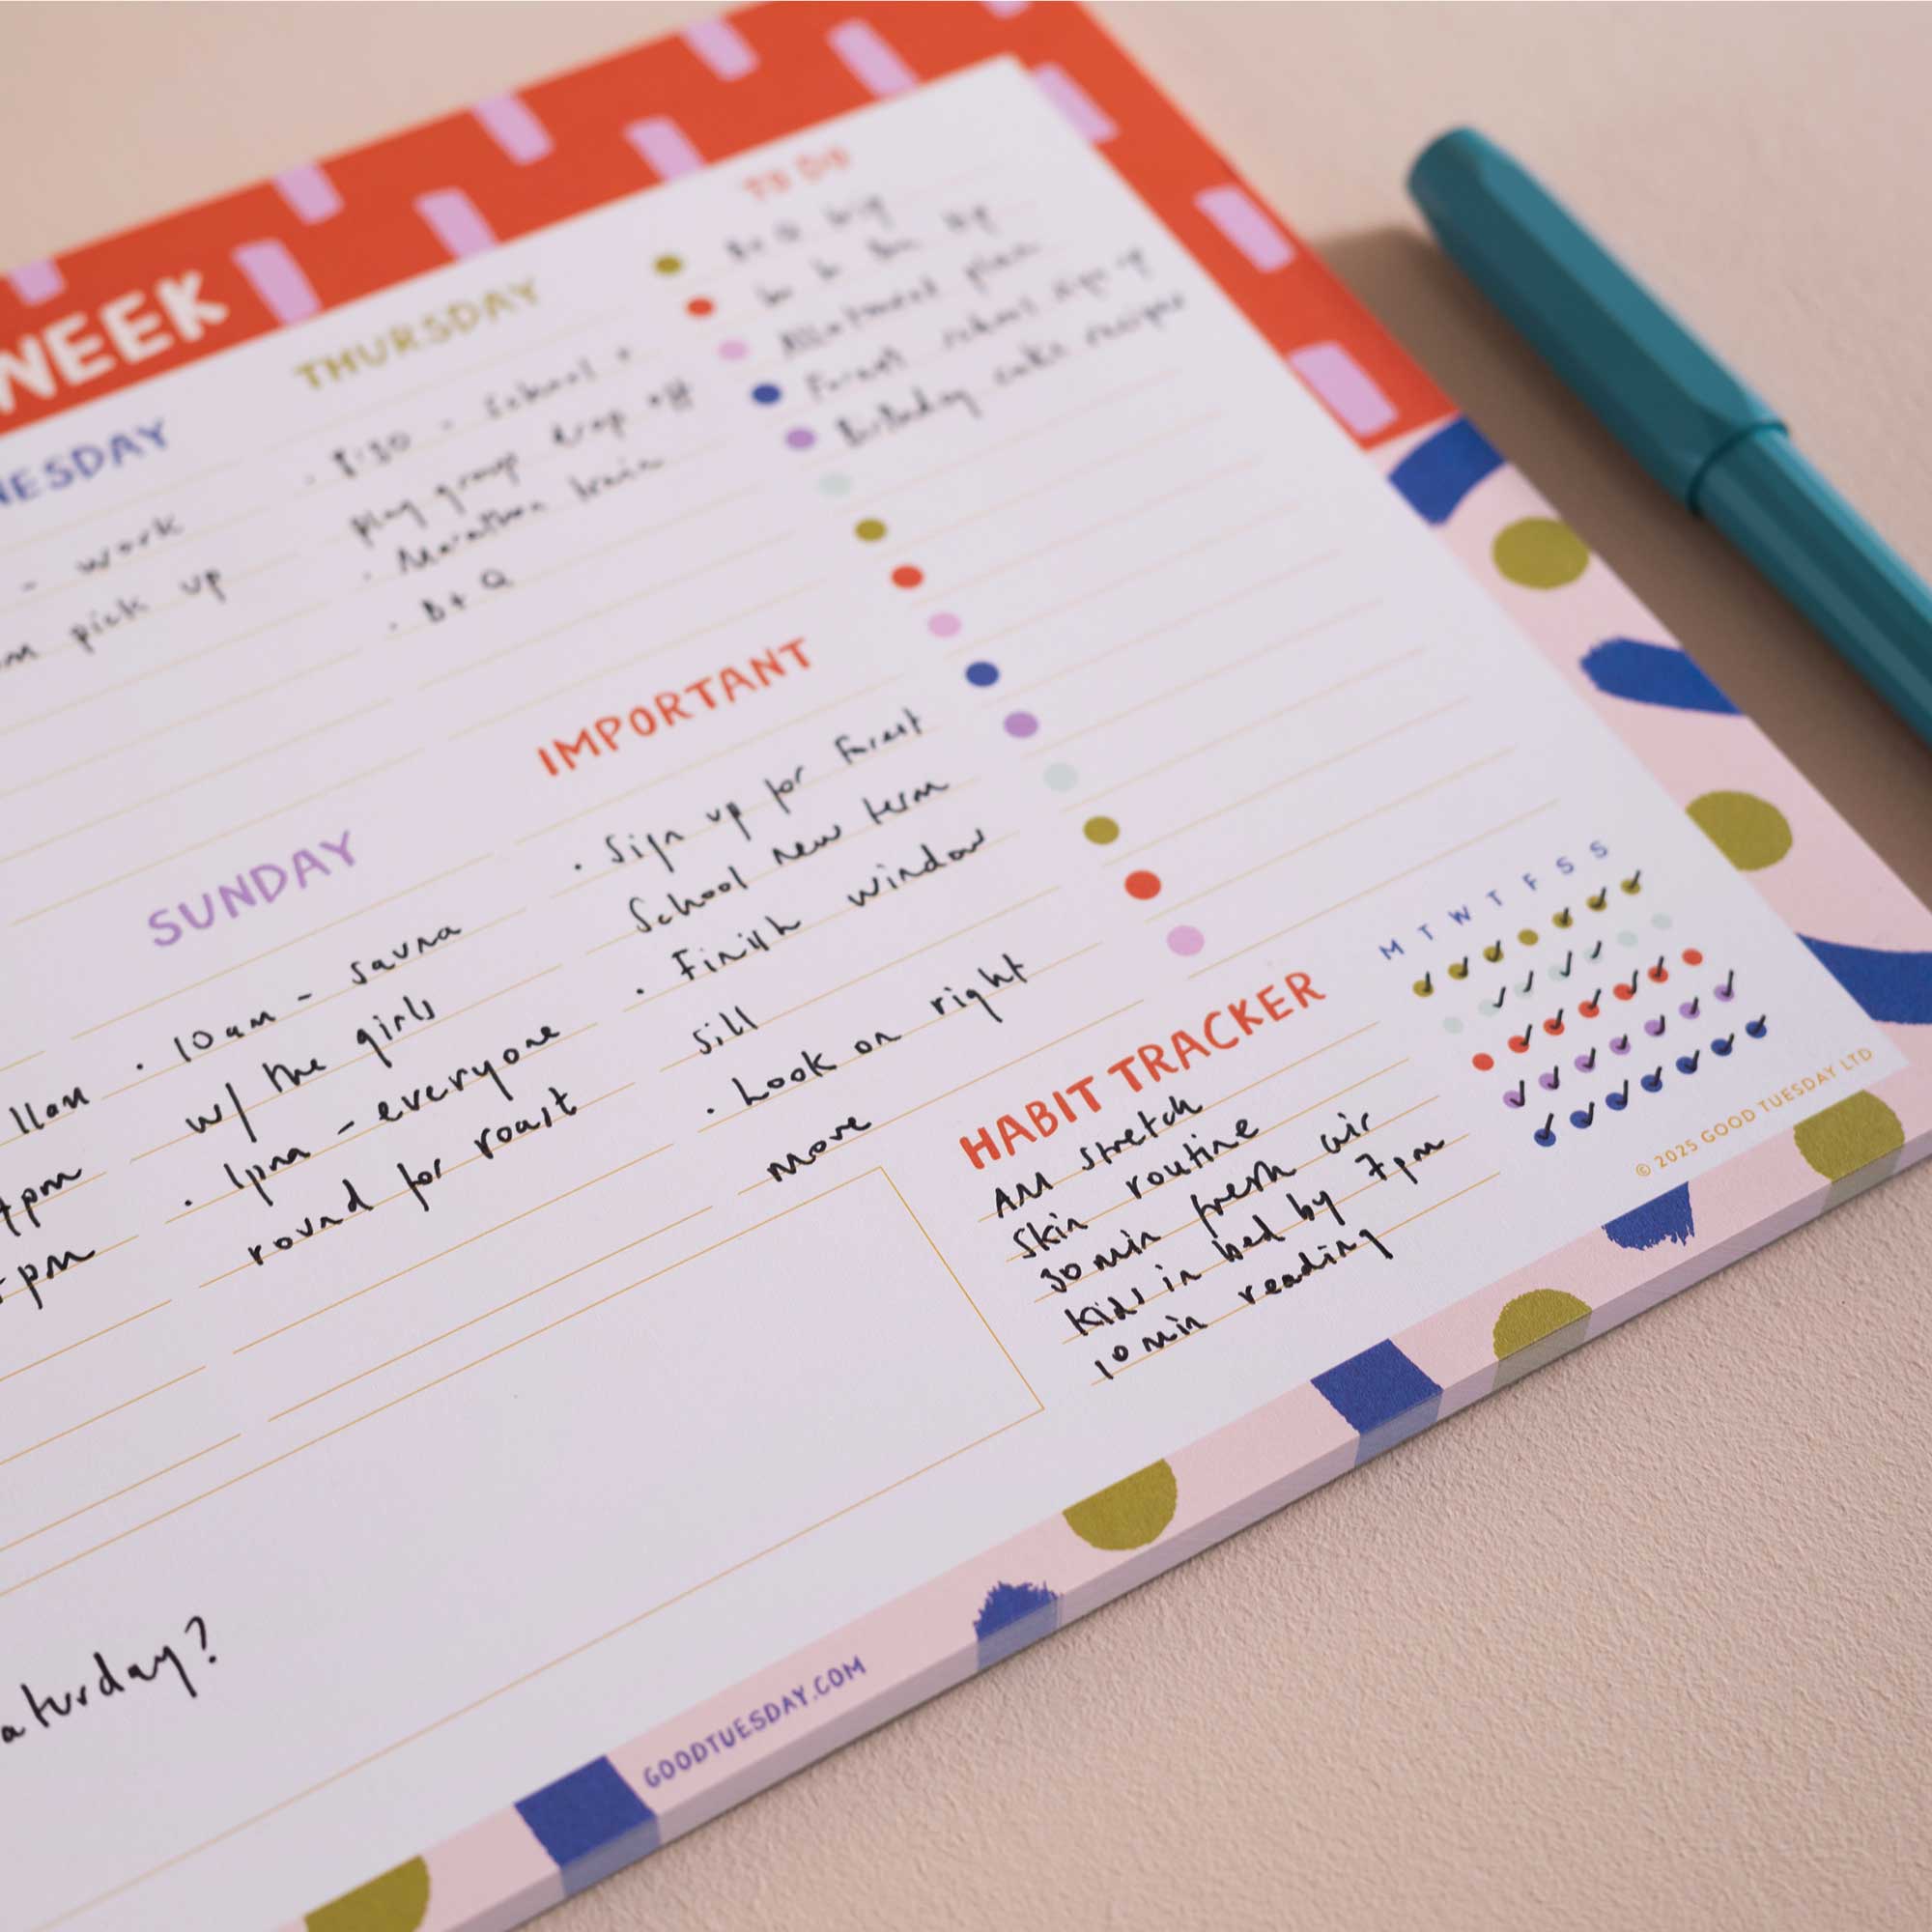 WEEK
NESDAY
- work
m pick up
THURSDAY
· 8:30 - School +
play group drop off
· Marathon train
· B+Q
TO DO
B+Q
Allotment plan
Forest school sign up
Birthday cake recipes
IMPORTANT
· Sign up for Forest
School new term
· Finish window
sill
· Look on right
move
SUNDAY
· 10am - sauna
w/ the girls
· 1pm - everyone
round for roast
pm
pm
aturday?
HABIT TRACKER
M T W T F S S
AM Stretch
Skin routine
30 min fresh air
Kids in bed by 7pm
10 min reading
© 2025 GOOD TUESDAY LTD
GOODTUESDAY.COM